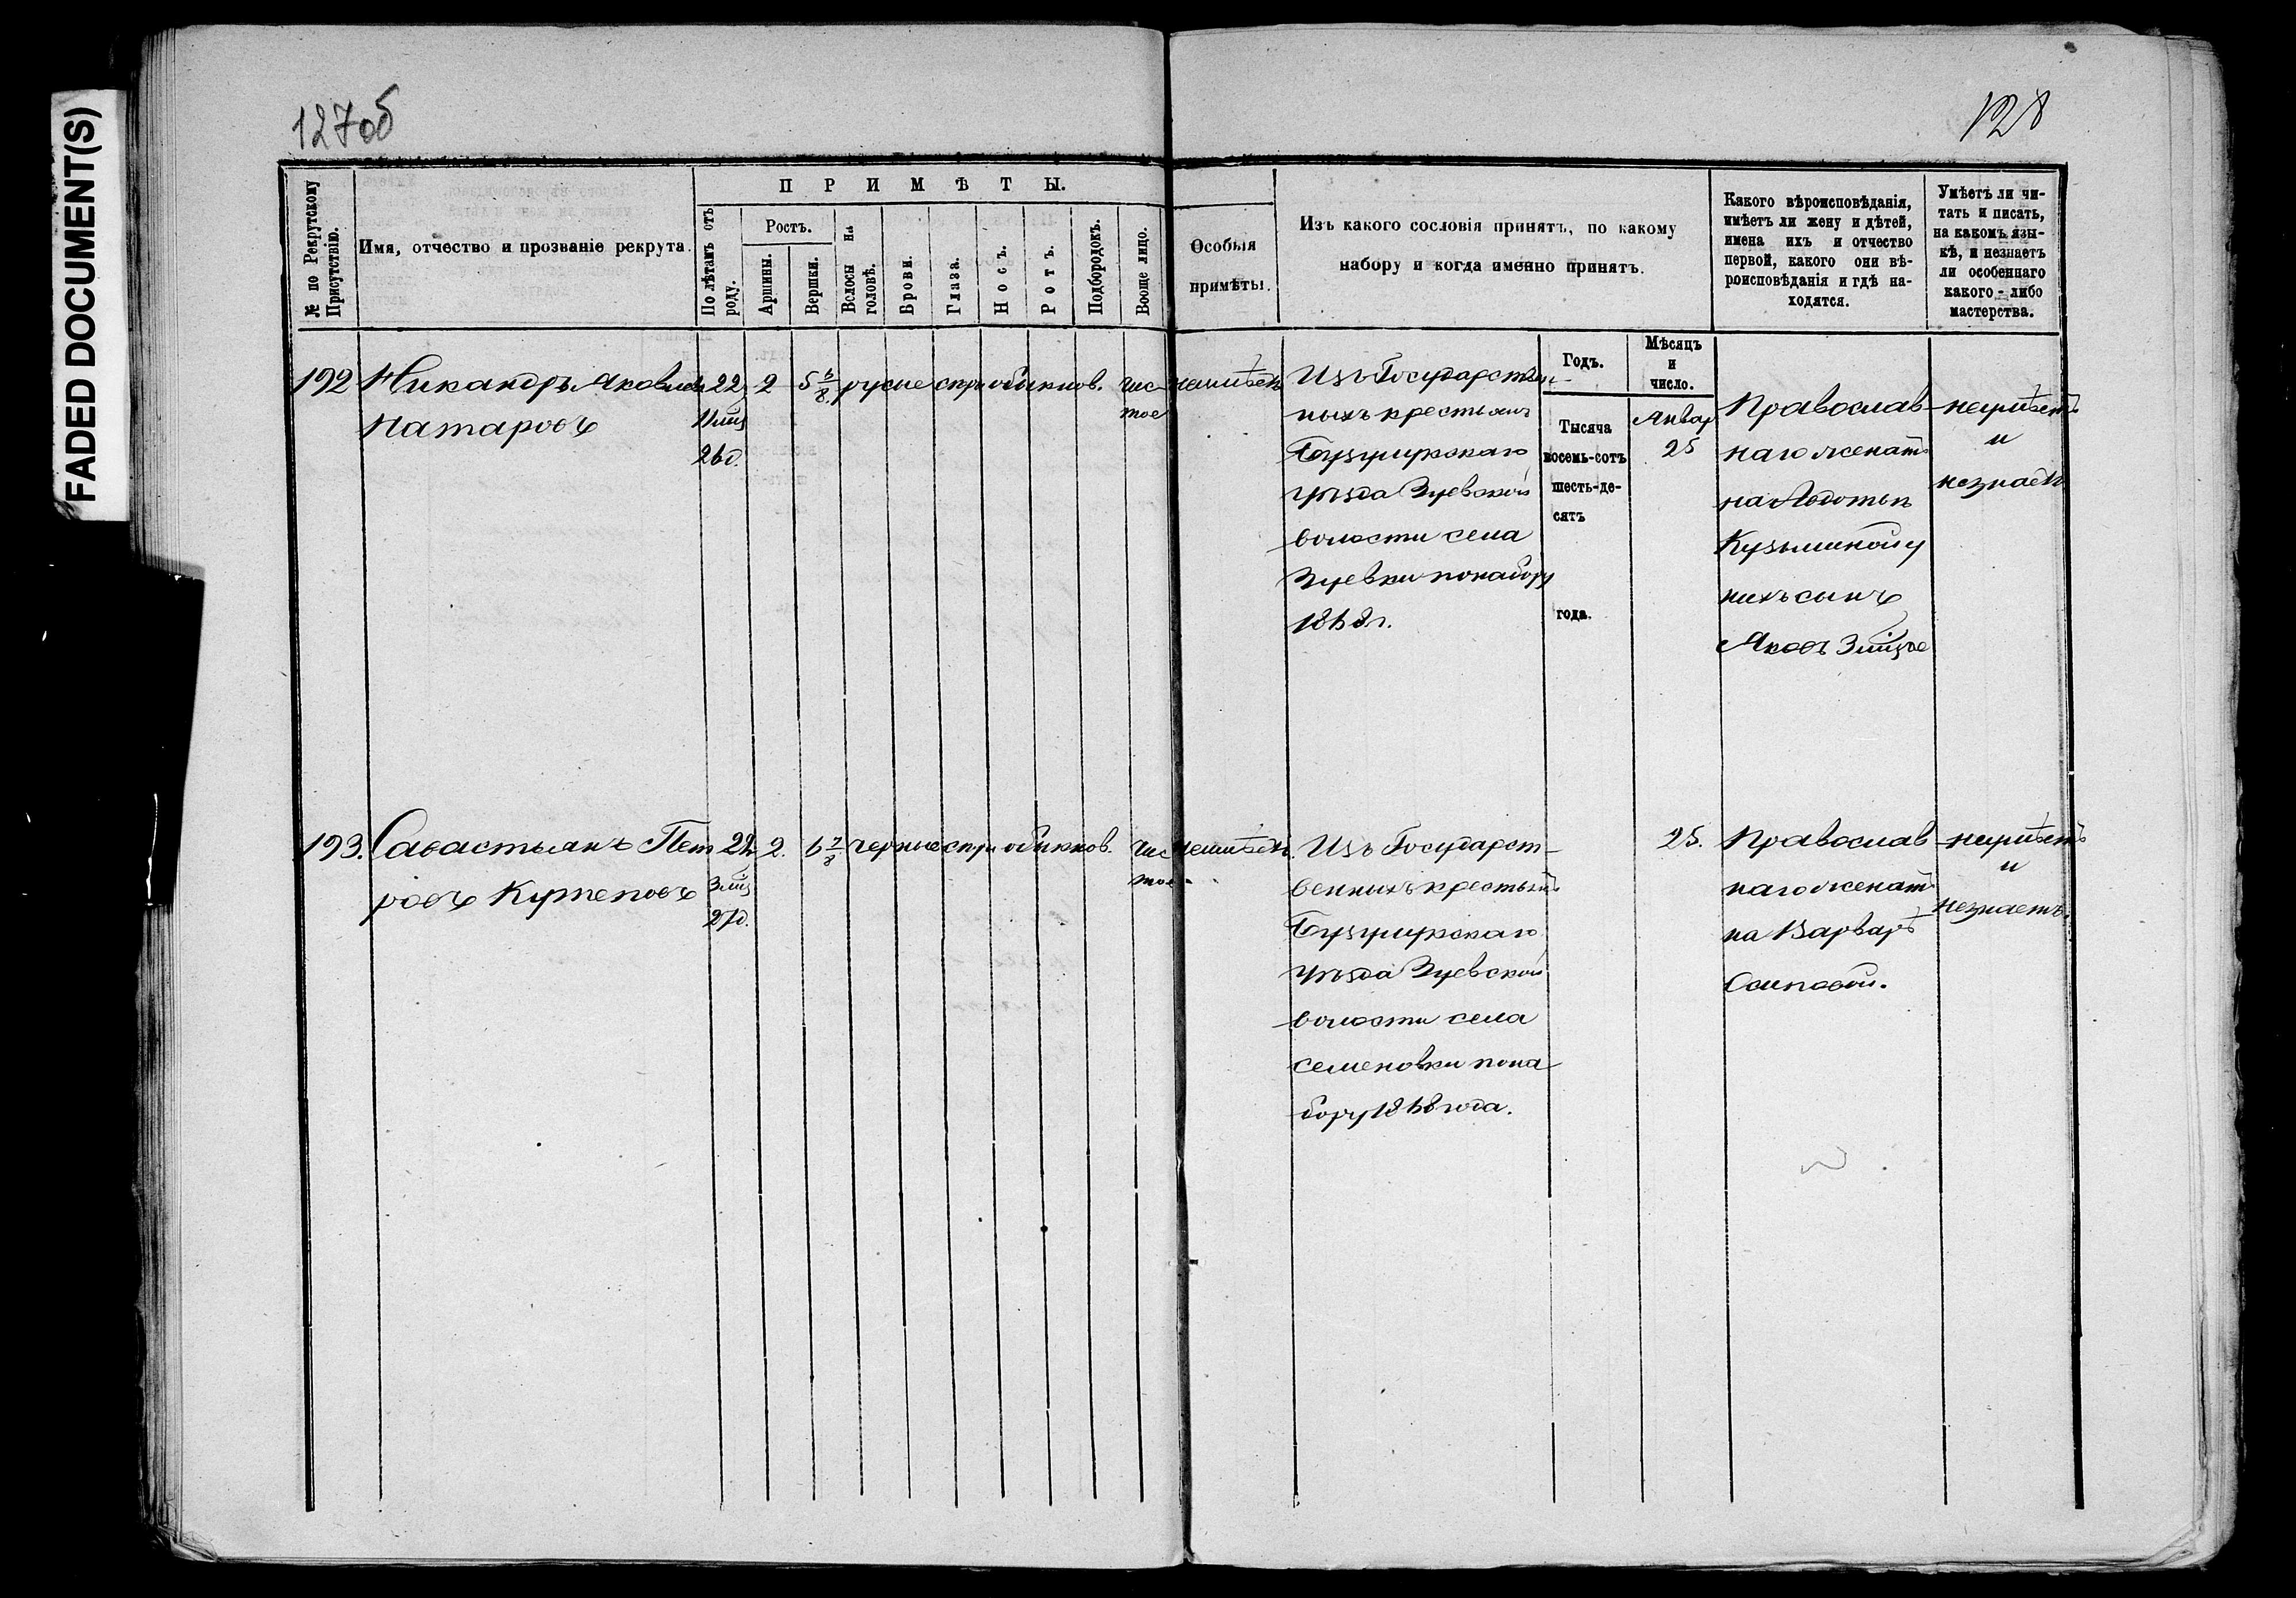 FADED DOCUMENT(S)
127об
128
№ по Рекрутскому Присутствію.
Имя, отчество и прозваніе рекрута.
ПРИМѢТЫ.
По лѣтамъ отъ роду.
Ростъ.
Аршины.
Вершки.
Волосы на головѣ.
Брови.
Глаза.
Носъ.
Ротъ.
Подбородокъ.
Вооще лицо.
Особыя
примѣты.
Изъ какого сословія принятъ, по какому
набору и когда именно принятъ.
Какого вѣроисповѣданія,
имѣетъ ли жену и дѣтей,
имена ихъ и отчество
первой, какого они вѣ-
роисповѣданія и гдѣ на-
ходятся.
Умѣетъ ли чи-
тать и писать,
на какомъ язы-
кѣ, и незнаетъ
ли особеннаго
какого-либо
мастерства.
Годъ.
Мѣсяцъ
и
число.
Тысяча
восемь-сотъ
шесть-де-
сятъ
года.
192 Никандръ Яковлевъ
Натаровъ
22
11 мц
26 д.
2 5 6/8 русые сѣры обыкнов. чис-
тое
неимѣетъ
Изъ Государствен-
ныхъ крестьянъ
Бузулукскаго
уѣзда Зуевской
волости села
Зуевки понабору
1868 г.
Январ
25
Православ-
наго женатъ
на Федотьѣ
Кузьминой у
нихъ сынъ
Яковъ 3 мцъ
неумѣетъ
и
незнаетъ
193. Савастьянъ Пет
ровъ Кутеповъ
22
3 мц
27 д.
2. 6 7/8 черные сѣры обыкнов. чис
тое
неимѣетъ.
Изъ Государст-
венныхъ крестьянъ
Бузулукскаго
уѣзда Зуевской
волости села
Семеновки пона
бору 1868 года.
25.
Православ
наго женатъ
на Варварѣ
Осиповой.
неумѣетъ
и
незнаетъ.